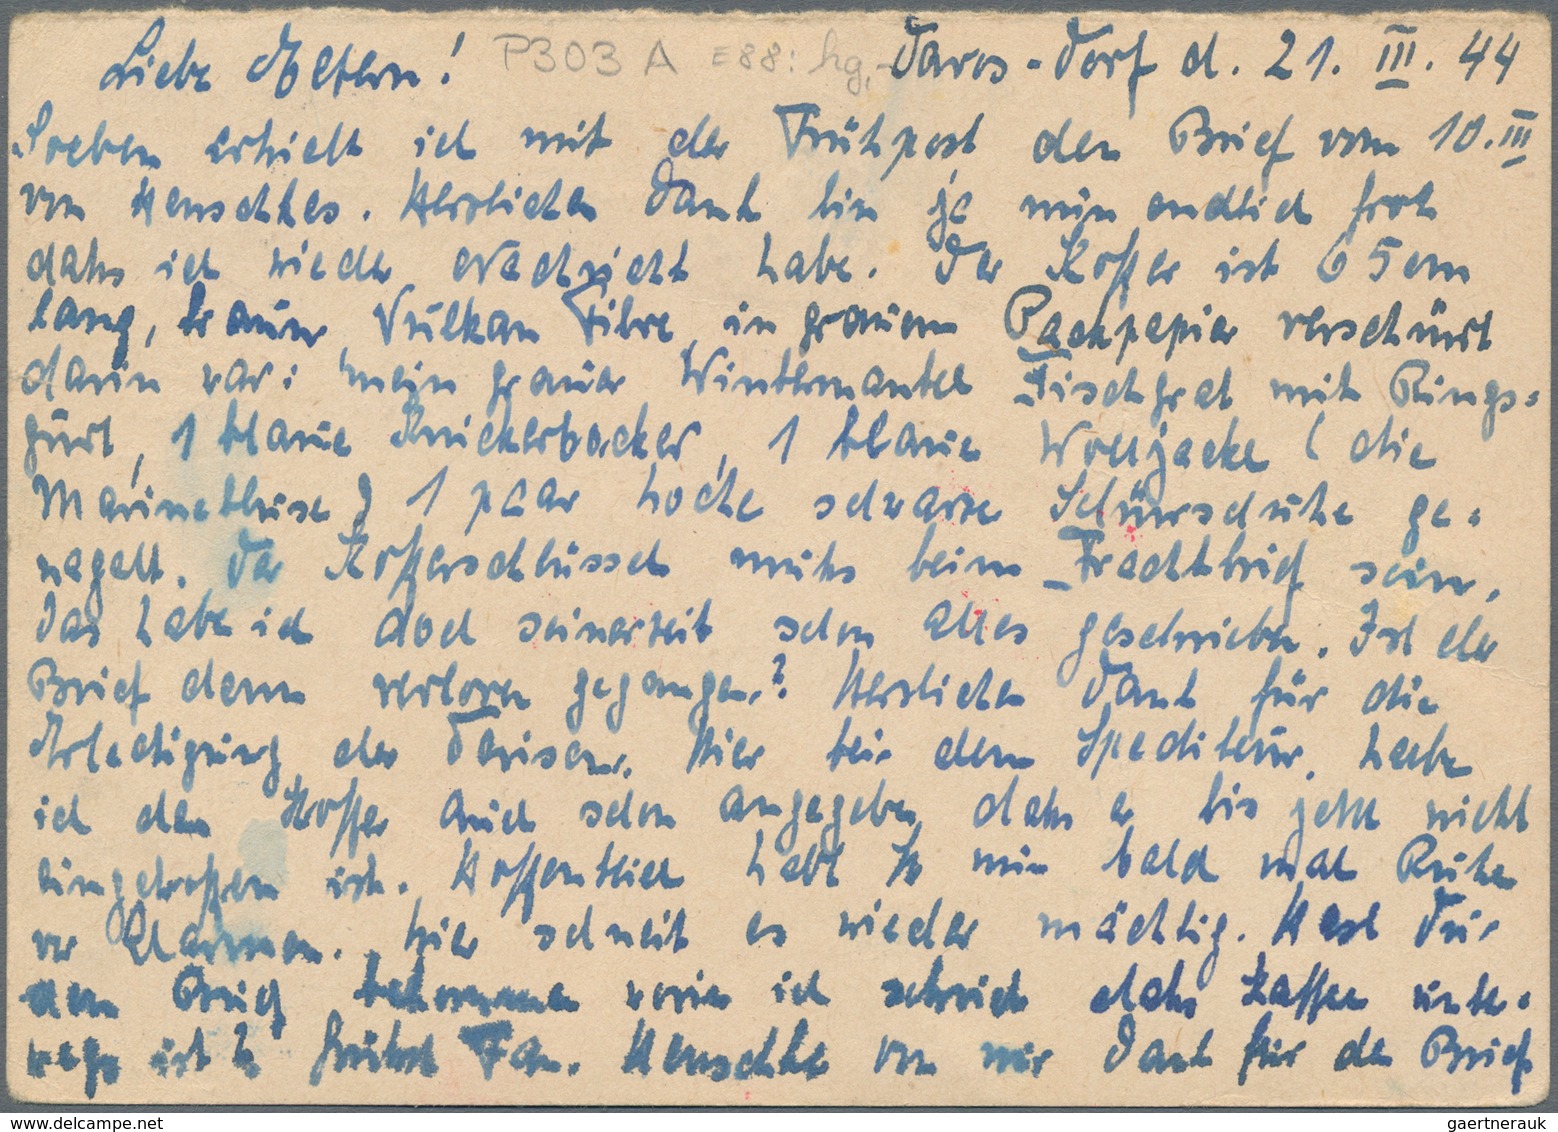 Liebe Eltern! P303 A E88: hg. Davos-Dorf d. 21. III. 44
Soeben erhielt ich mit der Frühpost den Brief vom 10. III
von Henschkes. Herzlichen Dank bin ja nun endlich froh
dahs ich wieder Nachricht habe. Der Koffer ist 65 cm
lang, braune Vulkan Fibre, in grauem Packpapier verschnürt
darin war: mein grauer Wintermantel Fischgrat mit Rings=
gurt, 1 blaue Knickerbocker, 1 blaue Wolljacke (die
Marinebluse) 1 paar hohe schwarze Schnürschuhe ge=
nagelt. Der Kofferschlüssel muhs beim Frachtbrief sein,
Das habe ich doch seinerzeit schon alles geschrieben. Ist der
Brief denn verloren gegangen? Herzlichen Dank für die
Erledigung der Devisen. Hier bei dem Spediteur, habe
ich den Koffer auch schon angegeben, dahs er bis jetzt nicht
eingetroffen ist. Hoffentlich habt Ihr nun bald mal Ruhe
vor Alarmen. Hier schneit es wieder mächtig. Hast Du
den Brief bekommen worin ich schrieb dahs Kaffee unter=
wegs ist? Grühst Fam. Henschke von mir Dank für den Brief
gaertnerauk @ www.delcampe.net